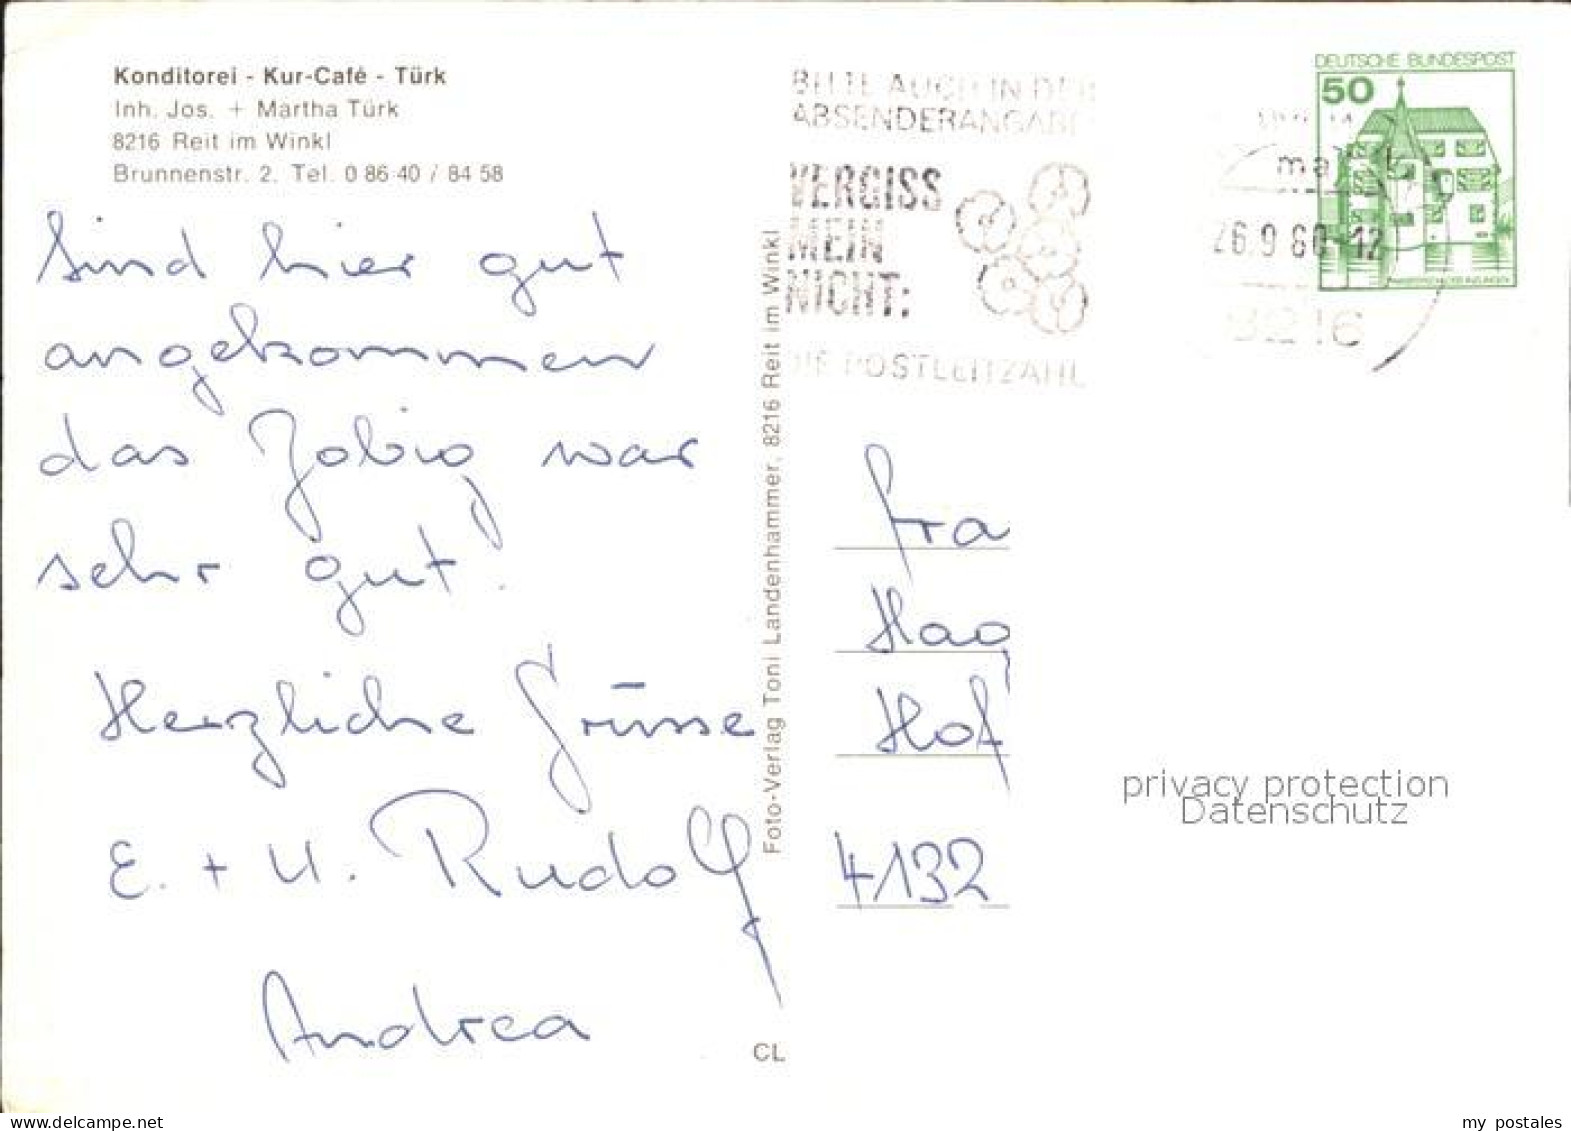 Konditorei - Kur-Café - Türk
Inh. Jos. + Martha Türk
8216 Reit im Winkl
Brunnenstr. 2. Tel. 0 86 40 / 84 58
Sind hier gut
angekommen
das Zobig war
sehr gut!
Herzliche Grüsse
E. + U. Rudolf
Andrea
Foto-Verlag Toni Landenhammer, 8216 Reit im Winkl
CL
BITTE AUCH IN DER
ABSENDERANGABE
VERGISS
MEIN
NICHT:
DIE POSTLEITZAHL
DEUTSCHE BUNDESPOST
50
26.9.80-12
8216
Fra
Hag
Hof
4132
privacy protection
Datenschutz
my postales